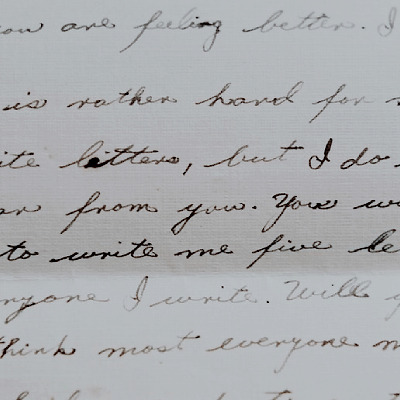 you are feeling better. I
is rather hard for
ite letters, but I do
ar from you. You wi
to write me five le
nyone I write. Will y
think most everyone m